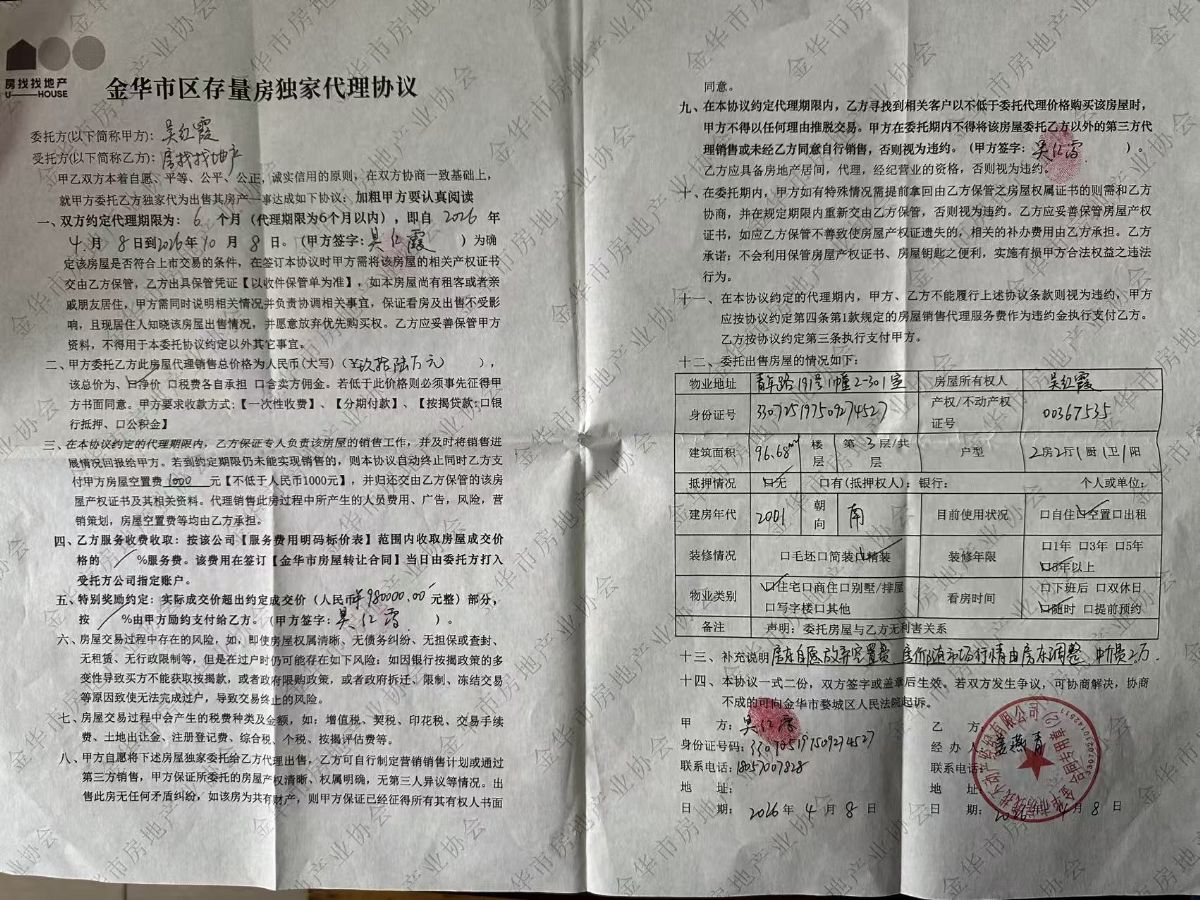 房找找地产
U——HOUSE
金华市区存量房独家代理协议
委托方(以下简称甲方)：吴红霞
受托方(以下简称乙方)：房找找地产
甲乙双方本着自愿、平等、公平、公正，诚实信用的原则，在双方协商一致基础上，
就甲方委托乙方独家代为出售其房产一事达成如下协议：加粗甲方要认真阅读
一、双方约定代理期限为：6个月（代理期限为6个月以内），即自2026年
4月8日到2026年10月8日。（甲方签字：吴红霞）为确
定该房屋是否符合上市交易的条件，在签订本协议时甲方需将该房屋的相关产权证书
交由乙方保管，乙方出具保管凭证【以收件保管单为准】，如本房屋尚有租客或者亲
戚朋友居住，甲方需同时说明相关情况并负责协调相关事宜，保证看房及出售不受影
响，且现居住人知晓该房屋出售情况，并愿意放弃优先购买权。乙方应妥善保管甲方
资料，不得用于本委托协议约定以外其它事宜。
二、甲方委托乙方此房屋代理销售总价格为人民币(大写)（玖拾陆万元），
该总价为、口净价 口税费各自承担 口含卖方佣金。若低于此价格则必须事先征得甲
方书面同意。甲方要求收款方式:【一次性收费】、【分期付款】、【按揭贷款:口银
行抵押、口公积金】
三、在本协议约定的代理期限内，乙方保证专人负责该房屋的销售工作，并及时将销售进
展情况回报给甲方。若到约定期限仍未能实现销售的，则本协议自动终止同时乙方支
付甲方房屋空置费1000元【不低于人民币1000元】，并归还交由乙方保管的该房
屋产权证书及其相关资料。代理销售此房过程中所产生的人员费用、广告，风险，营
销策划，房屋空置费等均由乙方承担。
四、乙方服务收费收取：按该公司【服务费用明码标价表】范围内收取房屋成交价
格的/%服务费。该费用在签订【金华市房屋转让合同】当日由委托方打入
受托方公司指定账户。
五、特别奖励约定：实际成交价超出约定成交价（人民币¥980000.00元整）部分，
按/%由甲方励约支付给乙方。（甲方签字：吴红霞）。
六、房屋交易过程中存在的风险，如，即使房屋权属清晰、无债务纠纷、无担保或查封、
无租赁、无行政限制等，但是在过户时仍可能存在如下风险：如因银行按揭政策的多
变性导致买方不能获取按揭款，或者政府限购政策，或者政府拆迁、限制、冻结交易
等原因致使无法完成过户，导致交易终止的风险。
七、房屋交易过程中会产生的税费种类及金额，如：增值税、契税、印花税、交易手续
费、土地出让金、注册登记费、综合税、个税、按揭评估费等。
八、甲方自愿将下述房屋独家委托给乙方代理出售，乙方可自行制定营销销售计划或通过
第三方销售，甲方保证所委托的房屋产权清晰、权属明确，无第三人异议等情况。出
售此房无任何矛盾纠纷，如该房为共有财产，则甲方保证已经征得所有其有权人书面
同意。
九、在本协议约定代理期限内，乙方寻找到相关客户以不低于委托代理价格购买该房屋时，
甲方不得以任何理由推脱交易。甲方在委托期内不得将该房屋委托乙方以外的第三方代
理销售或未经乙方同意自行销售，否则视为违约。（甲方签字：吴红霞）。
乙方应具备房地产居间，代理，经纪营业的资格，否则视为违约。
十、在委托期内，甲方如有特殊情况需提前拿回由乙方保管之房屋权属证书的则需和乙方
协商，并在规定期限内重新交由乙方保管，否则视为违约。乙方应妥善保管房屋产权
证书，如应乙方保管不善致使房屋产权证遗失的，相关的补办费用由乙方承担。乙方
承诺：不会利用保管房屋产权证书、房屋钥匙之便利，实施有损甲方合法权益之违法
行为。
十一、在本协议约定的代理期内，甲方、乙方不能履行上述协议条款则视为违约，甲方
应按协议约定第四条第1款规定的房屋销售代理服务费作为违约金执行支付乙方。
乙方按协议约定第三条执行支付甲方。
十二、委托出售房屋的情况如下：
物业地址 青年路191号11幢2-301室 房屋所有权人 吴红霞
身份证号 330725197509274527 产权/不动产权证号 00367535
建筑面积 96.68m² 楼层 第3层/共 层 户型 2房2厅1厨1卫1阳
抵押情况 口无 口有(抵押权人)：银行： 个人或单位：
建房年代 2001 朝向 南 目前使用状况 口自住口空置口出租
装修情况 口毛坯口简装口精装 装修年限 口1年 口3年 口5年
口8年以上
物业类别 口住宅口商住口别墅/排屋 看房时间 口下班后 口双休日
口写字楼口其他 口随时 口提前预约
备注 声明：委托房屋与乙方无利害关系
十三、补充说明 房东自愿放弃空置费，房价随市场行情由房东调整，中介费2万.
十四、本协议一式二份，双方签字或盖章后生效。若双方发生争议，可协商解决，协商
不成的可向金华市婺城区人民法院起诉。
甲 方：吴红霞 乙 方
身份证号码：330725197509274527 经 办 人
联系电话：18057007828 联系电话：
地 址： 地 址
日 期：2026年4月8日 日 期：2026年4月8日
合同专用章
金华市房地产业协会